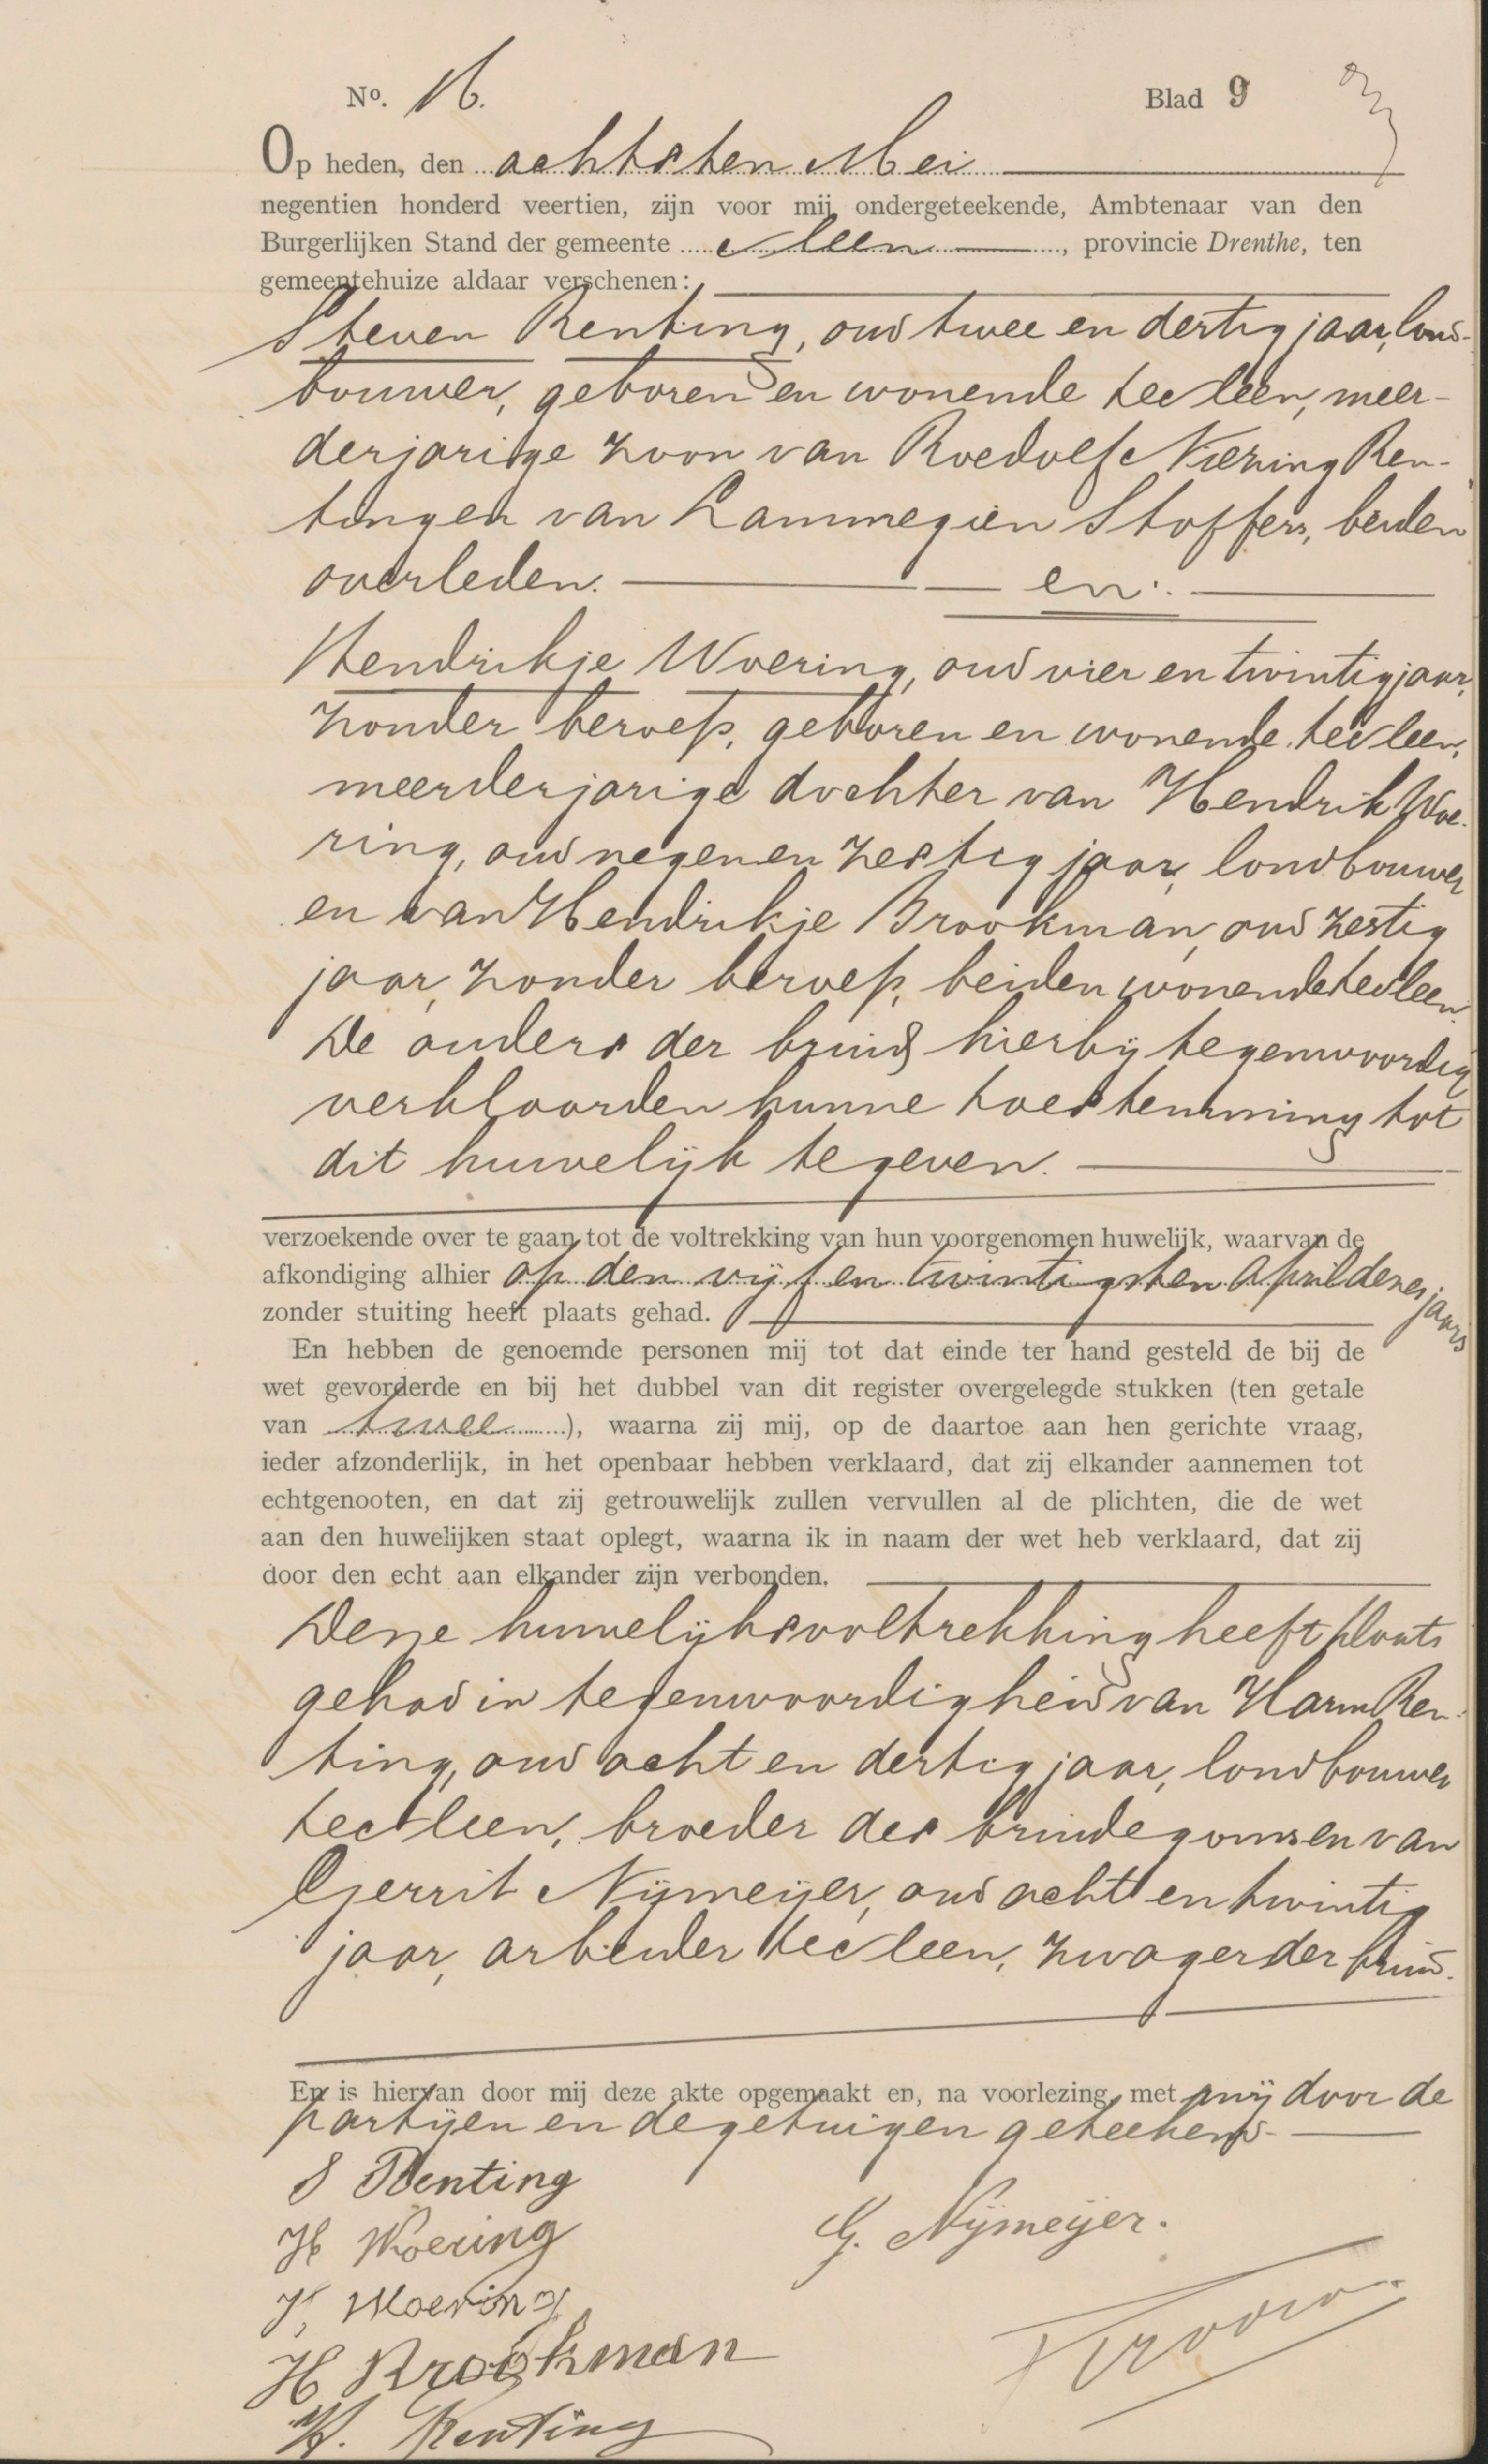 Nº. 16. Blad 9
Op heden, den achtsten Mei
negentien honderd veertien, zijn voor mij ondergeteekende, Ambtenaar van den
Burgerlijken Stand der gemeente , provincie Drenthe, ten
gemeentehuize aldaar verschenen:
Steven Renting, oud twee en dertig jaar, land-
bouwer, geboren en wonende te , meer-
derjarige zoon van Roedolf Niezing Ren-
ting en van Lammegien Stoffers, beiden
overleden. en:
Hendrikje Woering, oud vier en twintig jaar,
zonder beroep, geboren en wonende te ,
meerderjarige dochter van Hendrik Woe-
ring, oud negen en zestig jaar, landbouwer
en van Hendrikje Brookman, oud zestig
jaar, zonder beroep, beiden wonende te .
De ouders der bruid hierbij tegenwoordig
verklaarden hunne toestemming tot
dit huwelijk te geven.
verzoekende over te gaan tot de voltrekking van hun voorgenomen huwelijk, waarvan de
afkondiging alhier op den vijf en twintigsten April dezes jaars
zonder stuiting heeft plaats gehad.
En hebben de genoemde personen mij tot dat einde ter hand gesteld de bij de
wet gevorderde en bij het dubbel van dit register overgelegde stukken (ten getale
van twee ), waarna zij mij, op de daartoe aan hen gerichte vraag,
ieder afzonderlijk, in het openbaar hebben verklaard, dat zij elkander aannemen tot
echtgenooten, en dat zij getrouwelijk zullen vervullen al de plichten, die de wet
aan den huwelijken staat oplegt, waarna ik in naam der wet heb verklaard, dat zij
door den echt aan elkander zijn verbonden.
Deze huwelijksvoltrekking heeft plaats
gehad in tegenwoordigheid van Harm Ren-
ting, oud acht en dertig jaar, landbouwer
te , broeder des bruidegoms en van
Gerrit Nijmeijer, oud acht en twintig
jaar, arbeider te , zwager der bruid.
En is hiervan door mij deze akte opgemaakt en, na voorlezing, met mij door de
partijen en de getuigen geteekend
S Renting
H Woering G. Nijmeijer.
H. Woering
H Brookman
H. Renting